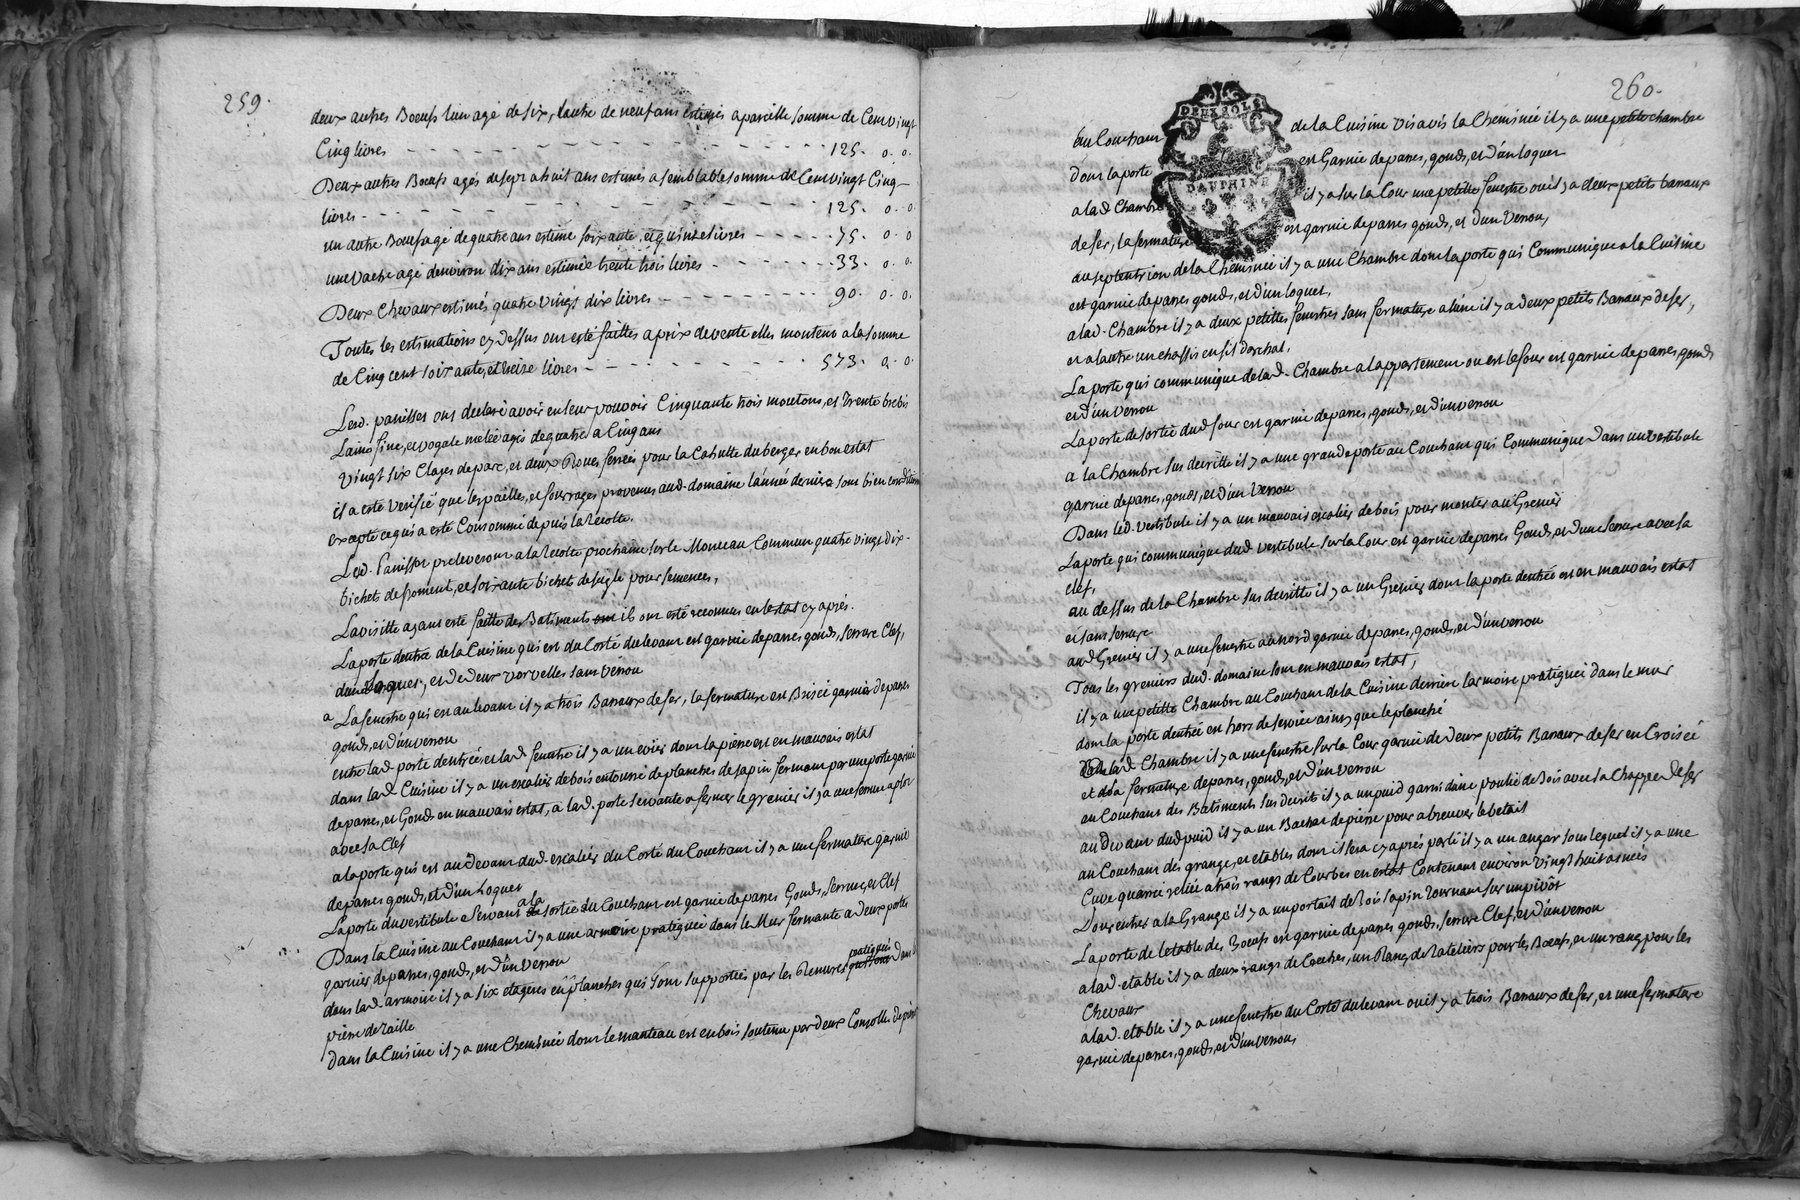 259.
deux autres Boeufs lun agé de six, lautre de neuf ans estimés a pareille somme de Cent vingt
Cinq livres - - - - - - - - - - 125. o. o.
Deux autres Boeufs agés de sept a huit ans estimés a semblable somme de Cent vingt Cinq -
livres - - - - - - - - - - 125. o. o.
un autre Boeuf agé de quatre ans estimé soixante, et quinze livres - - - - - 75. o. o
une vache agé denviron dix ans estimée trente trois livres - - - - - - 33. o. o.
Deux Chevaux estimés quatre vingt dix livres - - - - - - - - 90. o. o.
Toutes les estimations cy dessus ont esté faittes a prix de vente elles montent a la somme
de Cinq cent soixante, et treize livres - - - - - - - - 573. o. o.
Lesd. panisses ont declaré avoir en leur pouvoir Cinquante trois moutons, et Trente brebis
Laine fine, et vogale melée agés de quatre a Cinq ans
Vingt six Clayes de parc, et deux Roues ferrées pour la Cahutte du berger en bon estat
il a esté verifié que les pailles, et fourrages provenus aud. domaine l'année derniere sont bien conditioné
excepté ce qui a esté Consommé depuis la recolte.
Lesd. Panisses preleveront a la recolte prochaine sur le Monceau Commun quatre vingt dix -
bichets de froment, et soixante bichet de seigle pour semences,
La visitte ayant esté faitte des Batiments ont ils ont esté reconnus en lestat cy aprés.
La porte dentrée de la Cuisine qui est du Corté du levant est garnie de panes gonds, serrure Clef,
dun Loquet, et de deux vervelles sans verrou
a La fenestre qui est au levant il y a trois Barraux de fer, la fermature est Brisée garnie de panes
gonds, et d'un verrou
entre lad. porte dentrée, et lad. fenestre il y a un evier dont la pierre est en mauvais estat
dans lad. Cuisine il y a un escalier de bois entourré de planches de sapin fermant par une porte garnie
de panes, et Gonds en mauvais estat, a lad. porte servante a fermer le grenier il y a une serrure a plat
avec sa Clef
a la porte qui est au devant dud. escalier du Corté du Couchant il y a une fermature garnie
de panes gonds, et d'un Loquet
a la
La porte du vestibule servant de sortie du Couchant est garnie de panes Gonds, serrure, et Clef
Dans la Cuisine au Couchant il y a une armoire pratiquée dans le Mur fermante a deux portes
garnies de panes, gonds, et d'un verrou
pratiqués
dans lad. armoire il y a six etageres en planches qui sont supportées par les Renures qui sont dans la
pierre de taille
dans la Cuisine il y a une Cheminée dont le manteau est en bois soutenu par deux Consolles de pierre
260.
DEUX SOLS
DAUPHINE
au Couchant de la Cuisine vis avis la Cheminée il y a une petite chambre
dont la porte est Garnie de panes, gonds, et d'un loquet
a lad. Chambre il y a sur la Cour une petite fenestre ou il y a deux petits barraux
de fer, la fermature est garnie de panes gonds, et d'un Verrou,
au septentrion de la Cheminée il y a une Chambre dont la porte qui Communique a la Cuisine
est garnie de panes gonds, et d'un loquet,
a lad. Chambre il y a deux petittes fenestres sans fermature a lune il y a deux petits Barraux de fer,
et a lautre un chassis en fil d'archal.
La porte qui communique de lad. Chambre a l'appartement ou est le four est garnie de panes, gonds
et d'un verrou
La porte de sortie dud. four est garnie de panes, gonds, et d'un verrou
a la Chambre sus decritte il y a une grande porte au Couchant qui Communique dans un vestibule
garnie de panes, gonds, et d'un Verrou
Dans led. vestibule il y a un mauvais escalier de bois pour monter au Grenier
La porte qui communique dud. vestibule sur la Cour est garnie de panes Gonds, et d'une serrure avec sa
clef,
au dessus de la Chambre sus decritte il y a un Grenier dont la porte dentrée est en mauvais estat
et sans serrure
aud. Grenier il y a une fenestre au nord garnie de panes, gonds, et d'un verrou
Tous les greniers dud. domaine sont en mauvais estat,
il y a une petitte Chambre au Couchant de la Cuisine derriere l'armoire pratiquée dans le mur
dont la porte dentrée en hors de service ainsy que le planché
a lad. Chambre il y a une fenestre sur la Cour garnie de deux petits Barraux de fer en Croisée
et la fermeture de panes, gonds, et d'un verrou
au Couchant des Batiments sus decrits il y a un puid garni d'une poulie de Bois avec sa Chappe de fer
au devant dud. puid il y a un Bachat de pierre pour abreuver le bétail
au Couchant des grange, et etables dont il sera cy aprés parlé il y a un angar sous lequel il y a une
Cuve quarrée reliée a trois rangs de Courbes en estat Contenant environ vingt huit asnées
Pour entrer a la Grange il y a un portail de Bois sapin tournant sur un pivôt
La porte de letable des Boeufs est garnie de panes gonds, serrure Clef, et d'un verrou
a lad. etable il y a deux rangs de Creches, un Rang de Rateliers pour les Boeufs, et un rang pour les
Chevaux
a lad. etable il y a une fenestre du Corté du levant ou il y a trois Barraux de fer, et une fermature
garnie de panes, gonds, et d'un verrou,